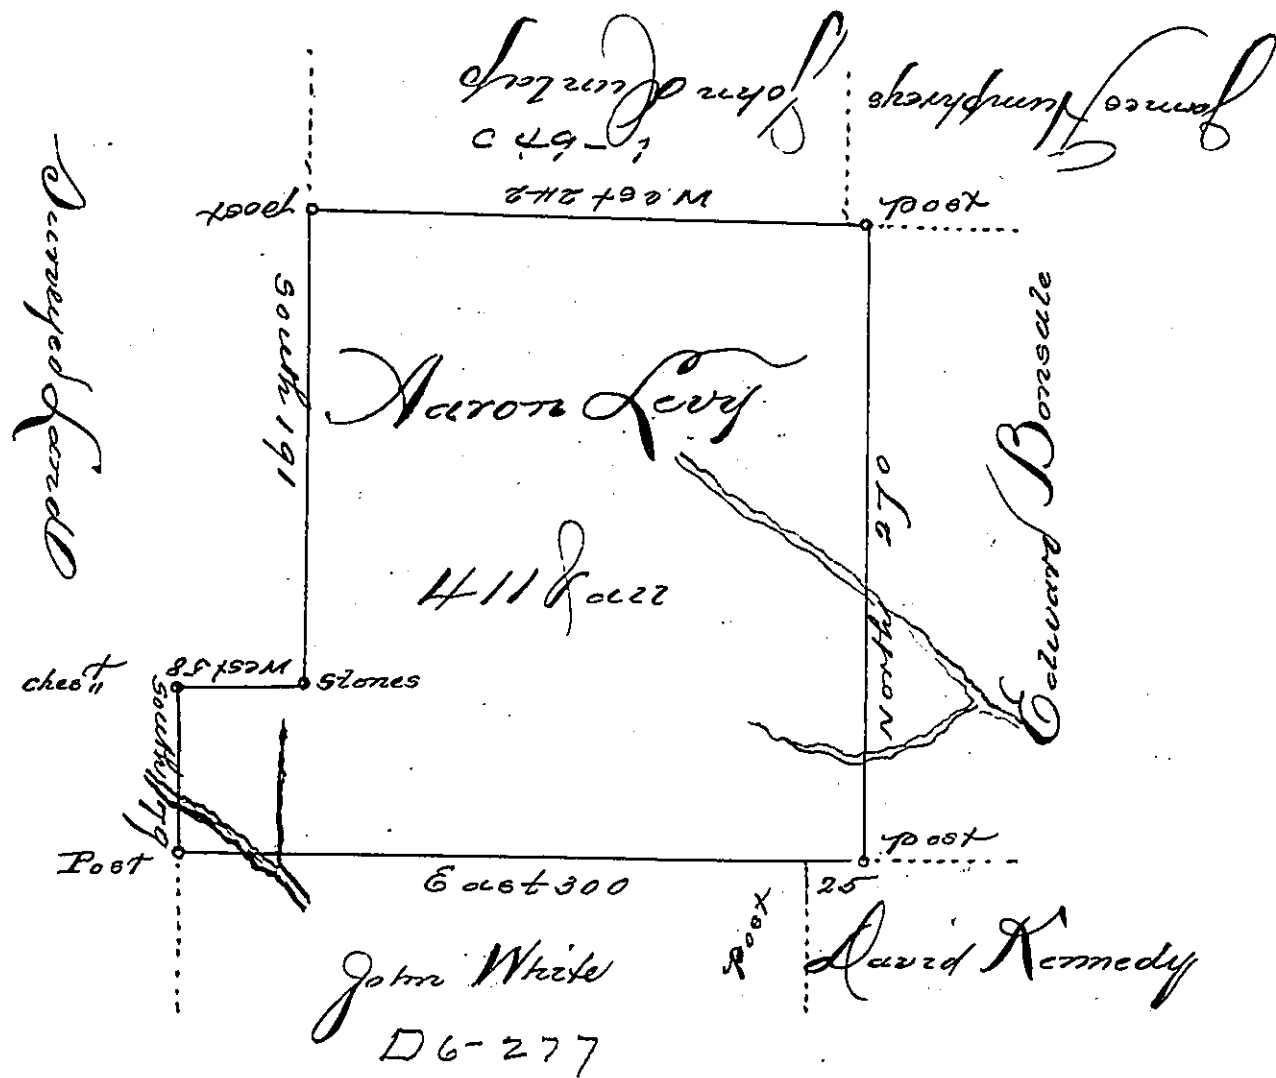 James Humphreys
John Dunlap
post
West 242
post
Surveyed Land
South 191
Aaron Levy
411
North 270
Edward Bonsale
chest"
West 58
stones
South 79
Post
East 300
25
post
post
John White
D6-277
David Kennedy